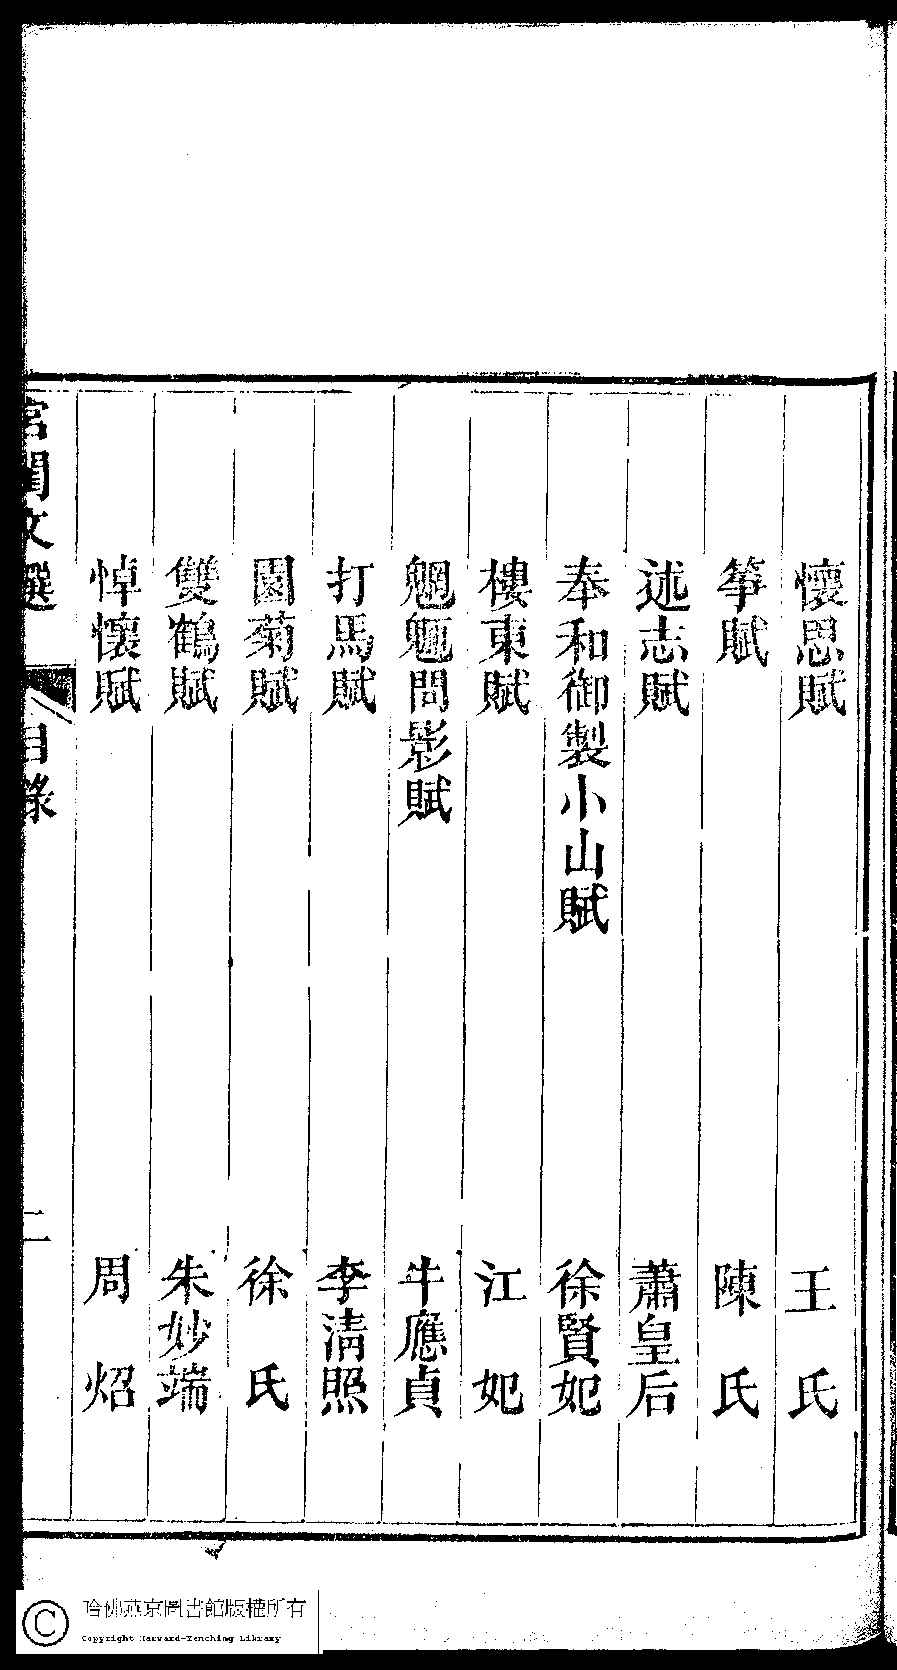 懷思賦　王氏
箏賦　陳氏
述志賦　蕭皇后
奉和御製小山賦　徐賢妃
樓東賦　江妃
魍魎問影賦　牛應貞
打馬賦　李清照
園菊賦　徐氏
雙鶴賦　朱妙端
悼懷賦　周炤
宮閨文選　目錄　二
哈佛燕京圖書館版權所有
Copyright Harvard-Yenching Library